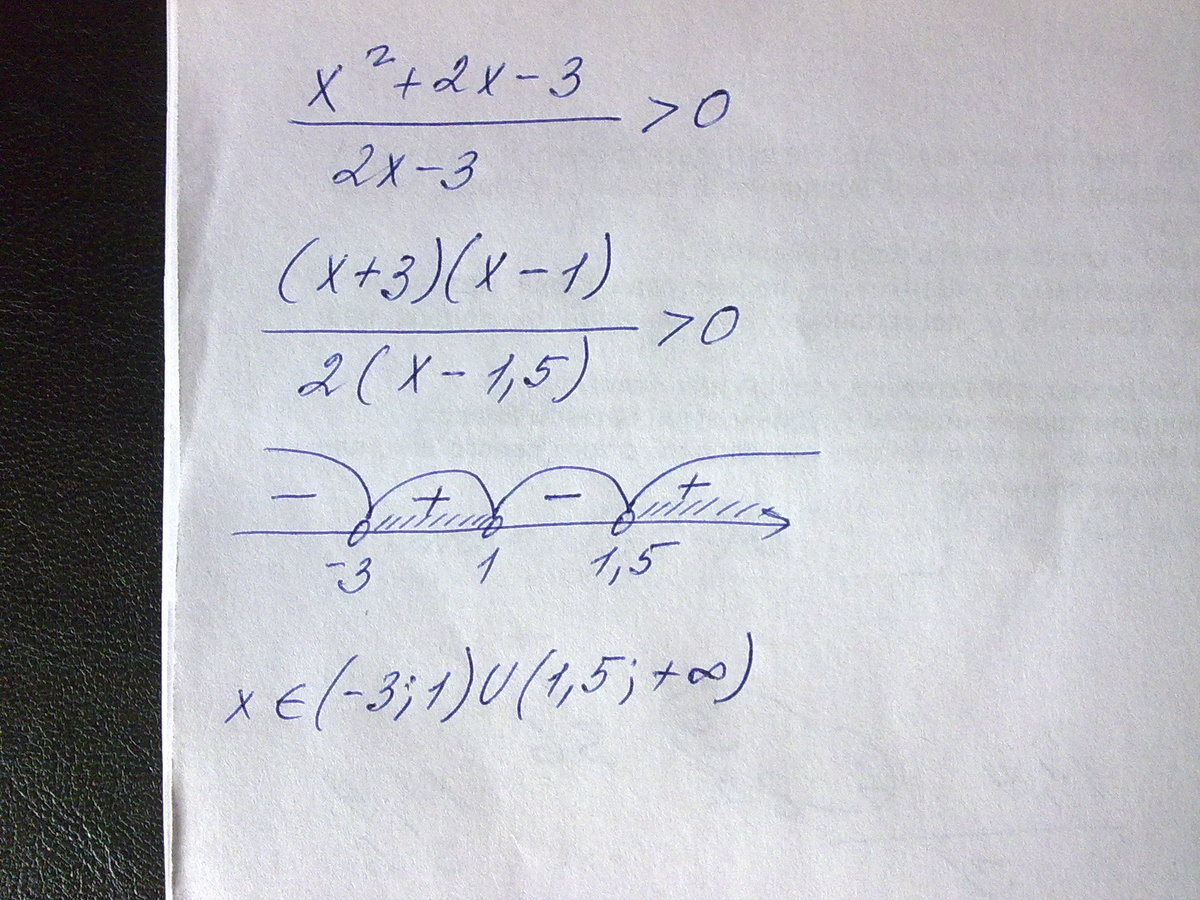 x²+2x-3
2x-3
>0
(x+3)(x-1)
2(x-1,5)
>0
- + - +
-3 1 1,5
x∈(-3;1)∪(1,5;+∞)